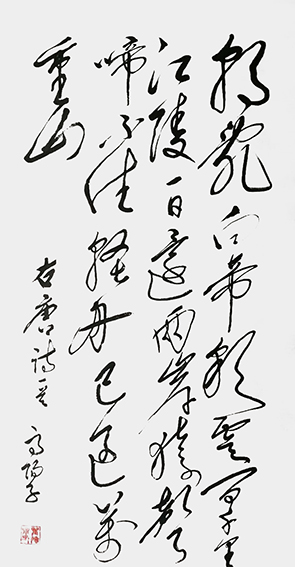 朝辭白帝彩雲间千里
江陵一日還兩岸猿聲
啼不住輕舟已過萬
重山
右唐詩一首 高陽子